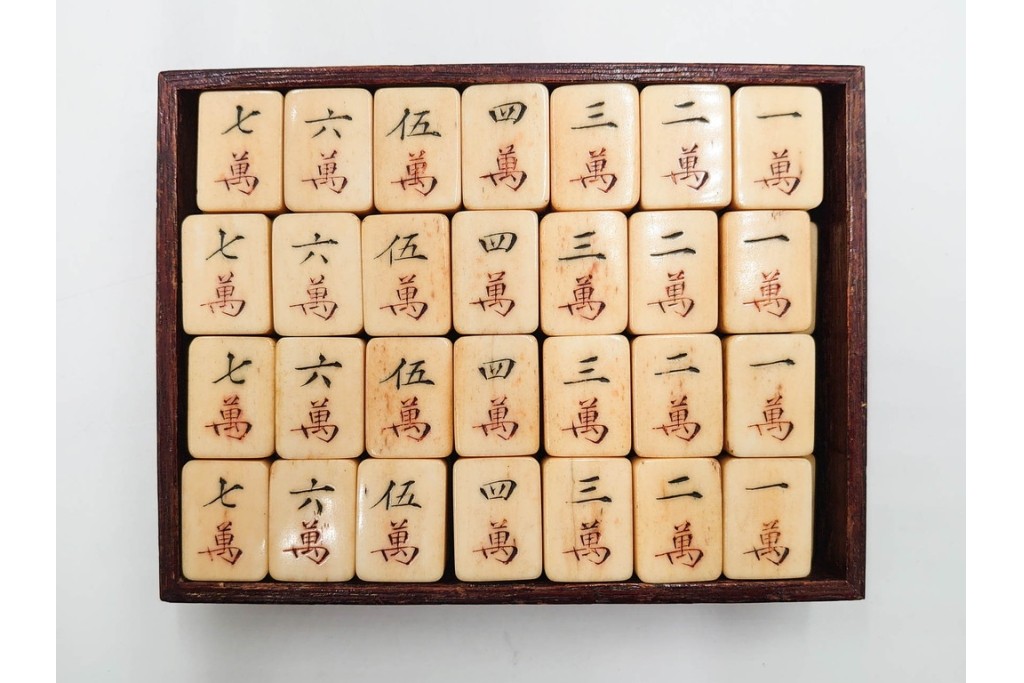 七 六 伍 四 三 二 一
萬 萬 萬 萬 萬 萬 萬
七 六 伍 四 三 二 一
萬 萬 萬 萬 萬 萬 萬
七 六 伍 四 三 二 一
萬 萬 萬 萬 萬 萬 萬
七 六 伍 四 三 二 一
萬 萬 萬 萬 萬 萬 萬